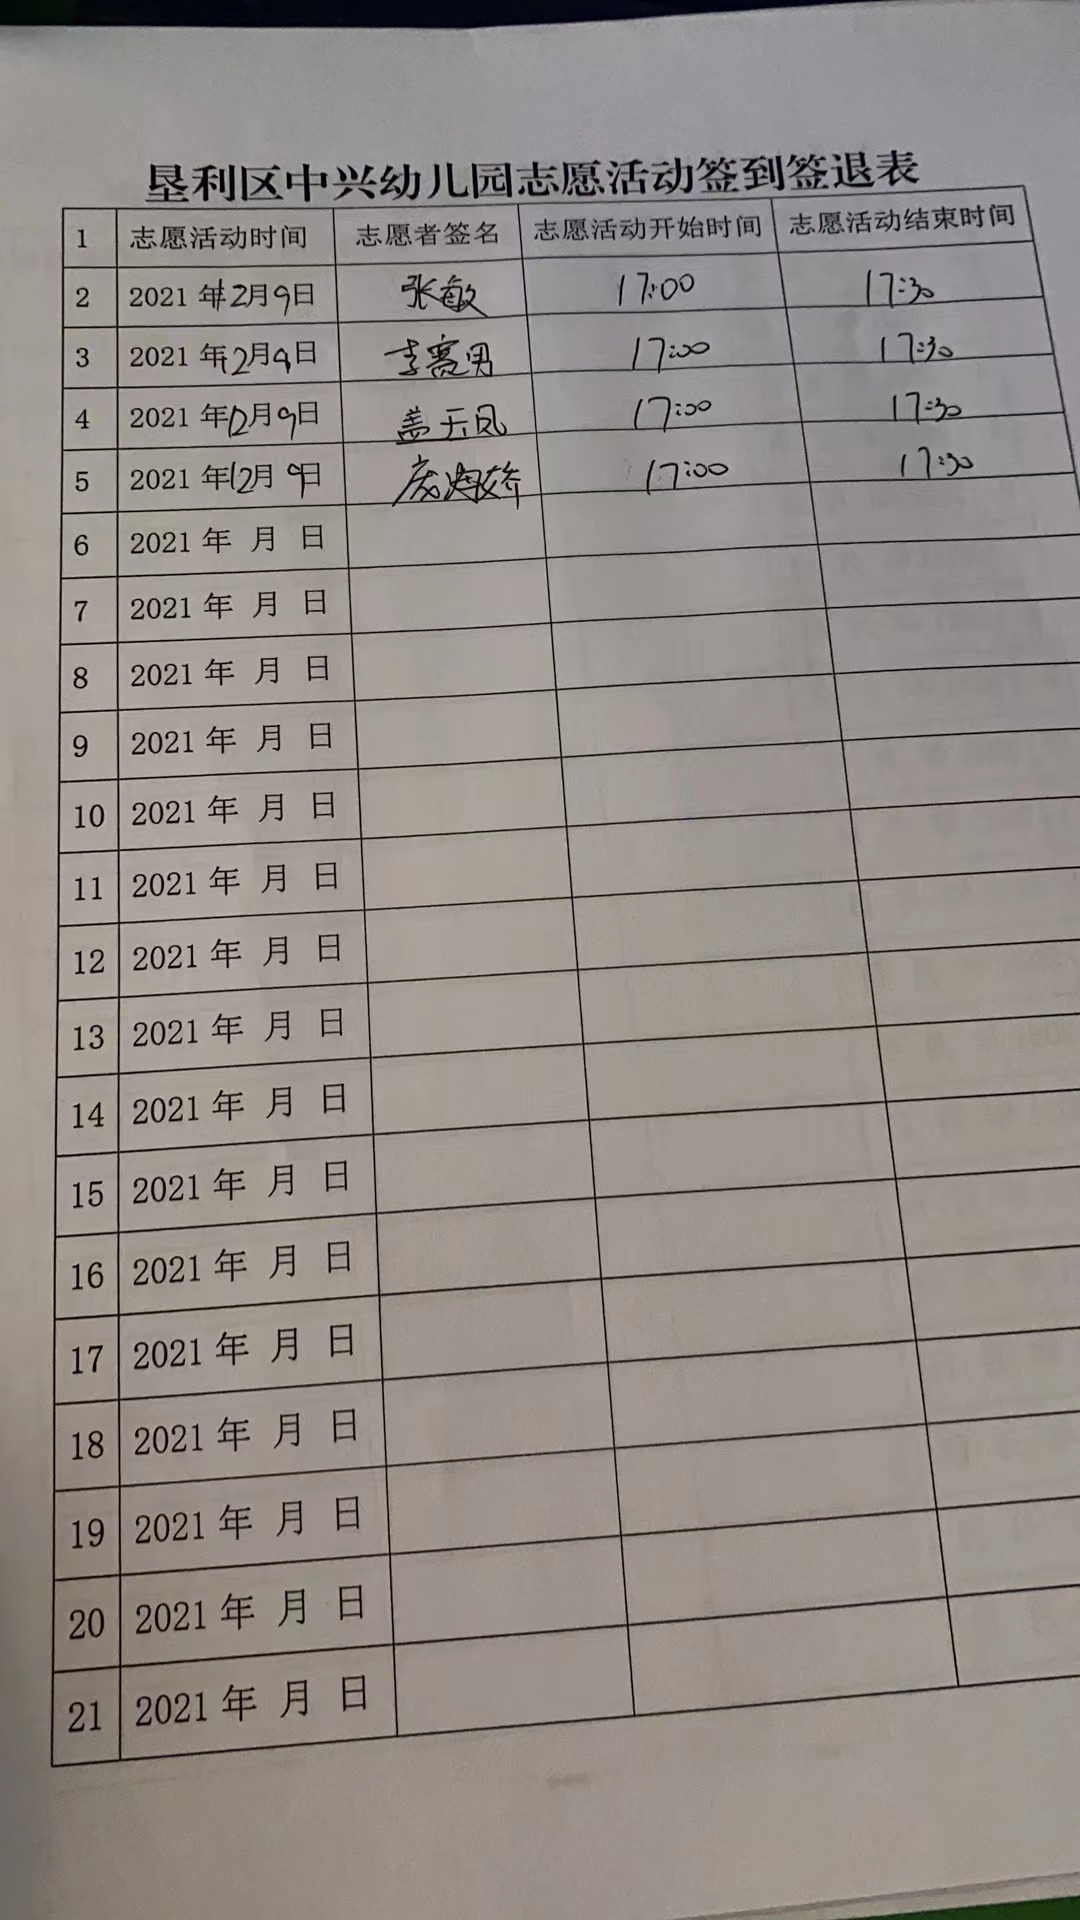 垦利区中兴幼儿园志愿活动签到签退表
1 志愿活动时间 志愿者签名 志愿活动开始时间 志愿活动结束时间
2 2021 年12月9日 张敏 17:00 17:30
3 2021 年12月9日 李赛男 17:00 17:30
4 2021 年12月9日 盖玉凤 17:00 17:30
5 2021 年12月9日 17:00 17:30
6 2021 年 月 日
7 2021 年 月 日
8 2021 年 月 日
9 2021 年 月 日
10 2021 年 月 日
11 2021 年 月 日
12 2021 年 月 日
13 2021 年 月 日
14 2021 年 月 日
15 2021 年 月 日
16 2021 年 月 日
17 2021 年 月 日
18 2021 年 月 日
19 2021 年 月 日
20 2021 年 月 日
21 2021 年 月 日